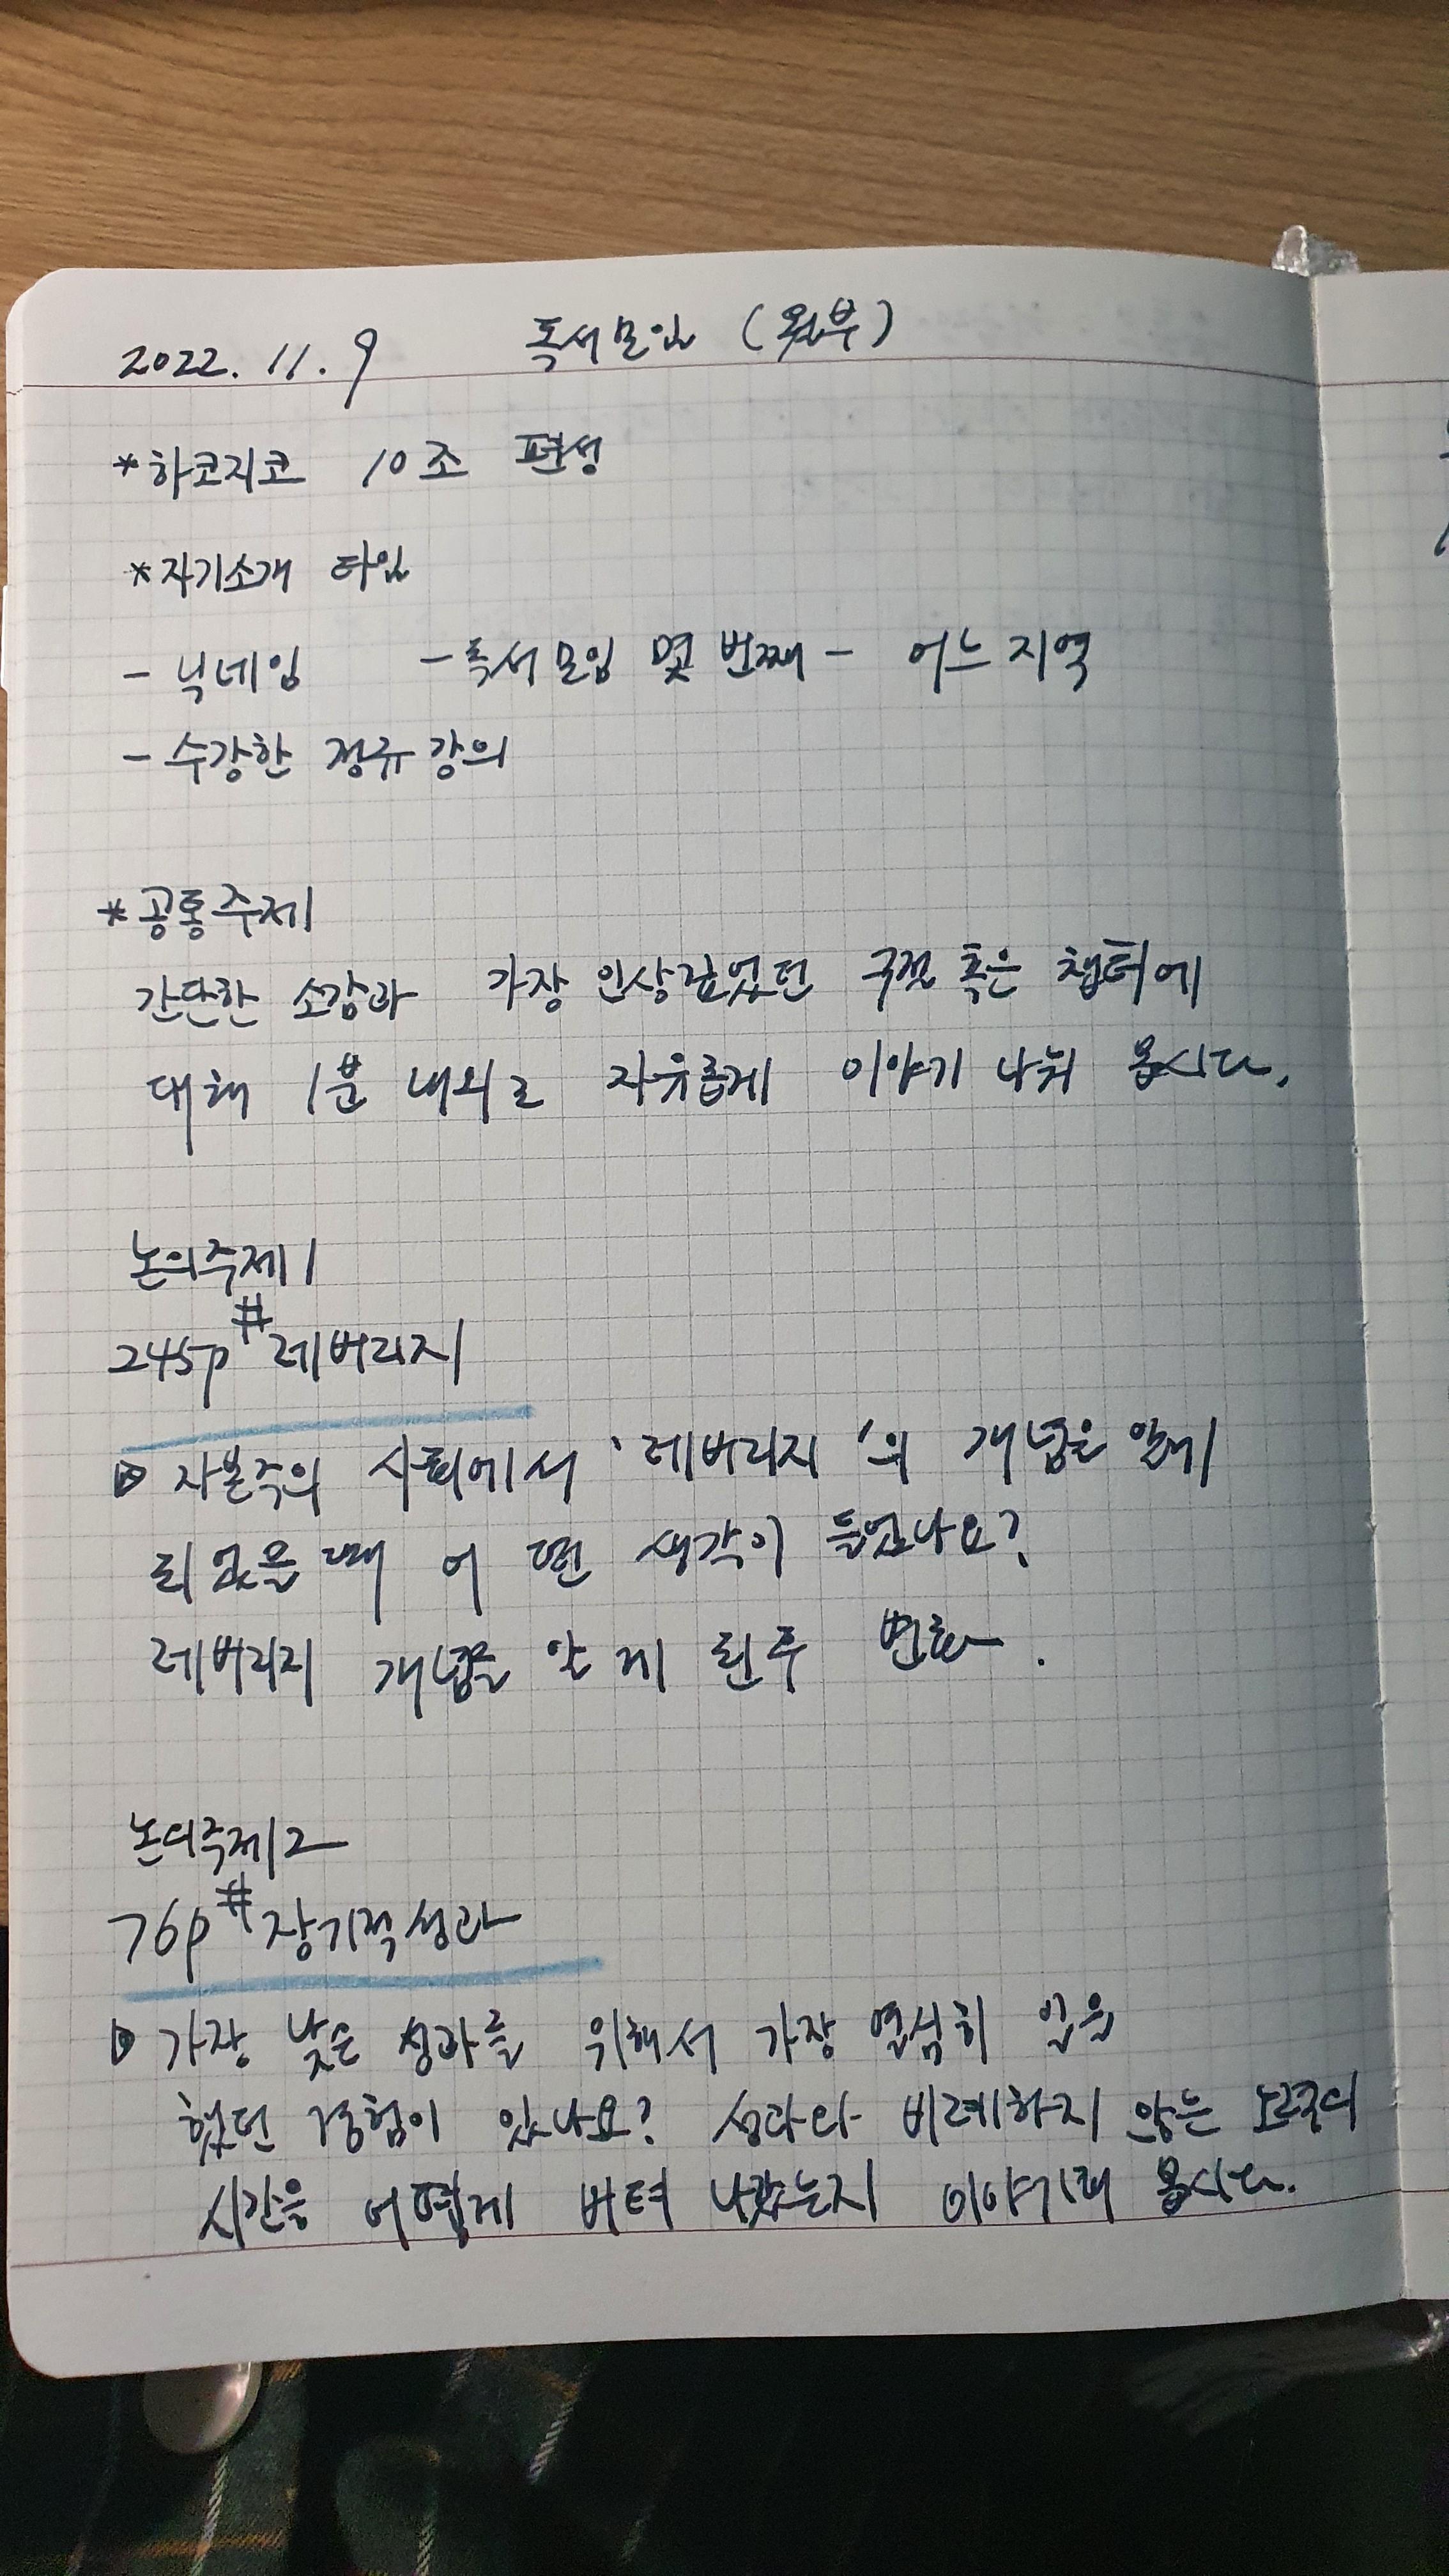 2022. 11. 9 독서모임 (월부)
*하코지코 10조 편성
*자기소개 타임
- 닉네임 - 독서모임 몇 번째 - 어느 지역
- 수강한 정규강의
*공통주제
간단한 소감과 가장 인상깊었던 구절 혹은 챕터에
대해 1분 내외로 자유롭게 이야기 나눠 봅시다.
논의주제1
245p #레버리지
▷ 자본주의 사회에서 '레버리지'의 개념은 알게
되었을때 어떤 생각이 들었나요?
레버리지 개념을 알게 된 후 변화.
논의주제2
76p #장기적성과
▷ 가장 낮은 성과를 위해서 가장 열심히 일을
했던 경험이 있나요? 성과와 비례하지 않는 노력의
시간을 어떻게 버텨 나갔는지 이야기해 봅시다.